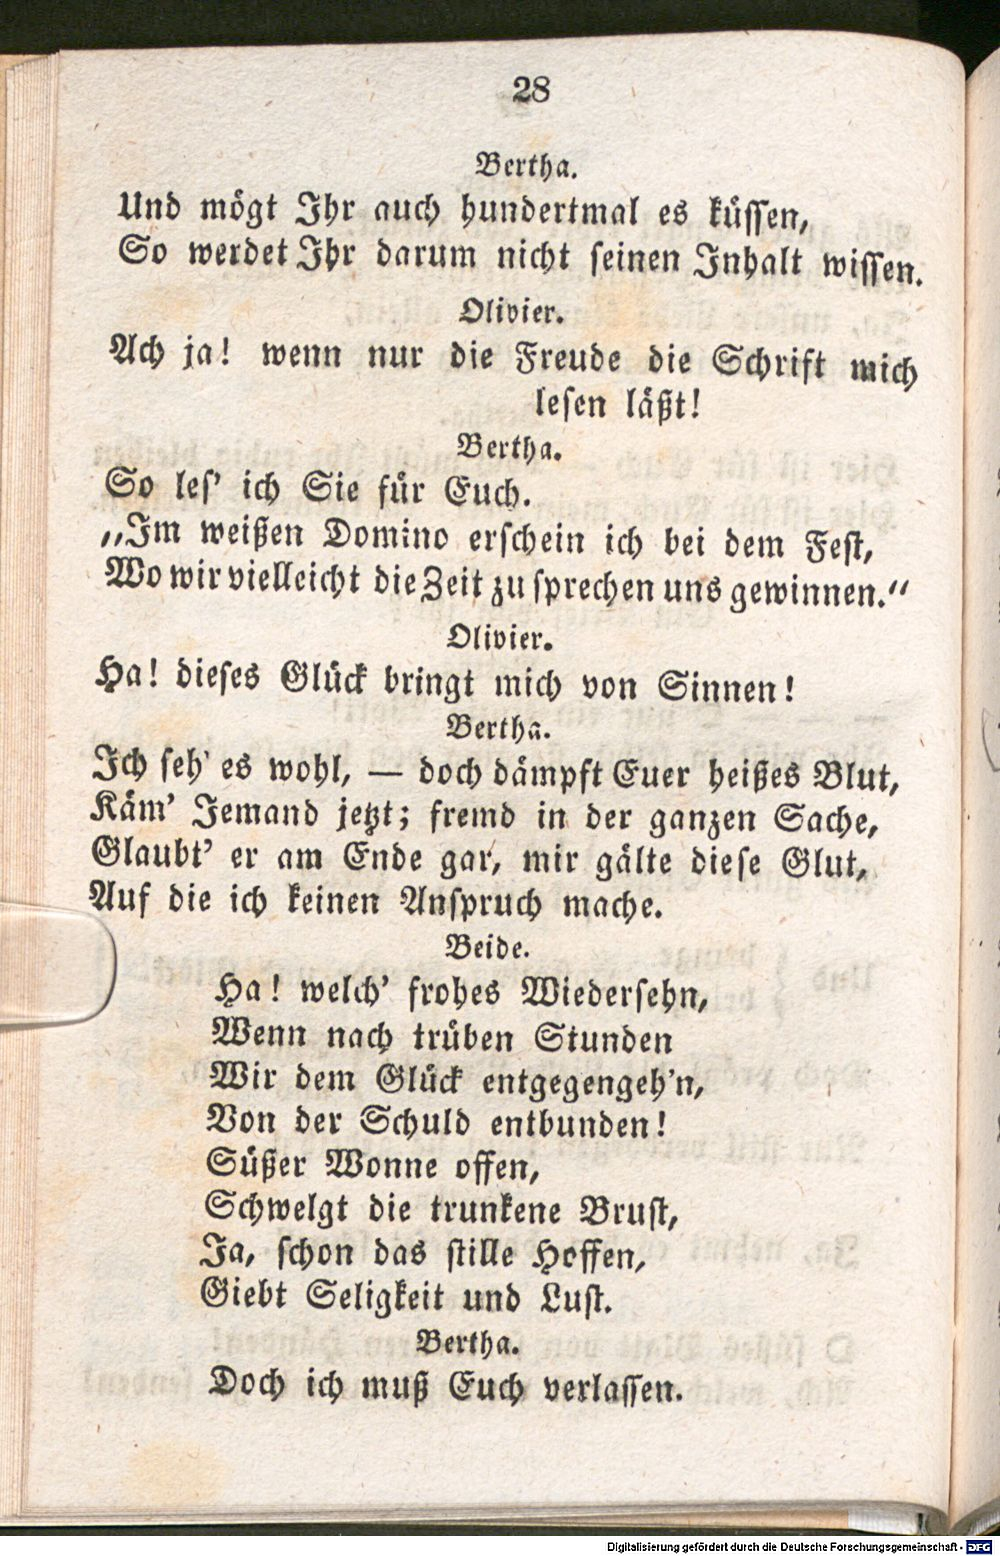 28
Bertha.
Und mögt Ihr auch hundertmal es küssen,
So werdet Ihr darum nicht seinen Inhalt wissen.
Olivier.
Ach ja! wenn nur die Freude die Schrift mich
lesen läßt!
Bertha.
So les' ich Sie für Euch.
„Im weißen Domino erschein ich bei dem Fest,
Wo wir vielleicht die Zeit zu sprechen uns gewinnen.“
Olivier.
Ha! dieses Glück bringt mich von Sinnen!
Bertha.
Ich seh' es wohl, — doch dämpft Euer heißes Blut,
Käm' Jemand jetzt; fremd in der ganzen Sache,
Glaubt' er am Ende gar, mir gälte diese Glut,
Auf die ich keinen Anspruch mache.
Beide.
Ha! welch' frohes Wiedersehn,
Wenn nach trüben Stunden
Wir dem Glück entgegengeh'n,
Von der Schuld entbunden!
Süßer Wonne offen,
Schwelgt die trunkene Brust,
Ja, schon das stille Hoffen,
Giebt Seligkeit und Lust.
Bertha.
Doch ich muß Euch verlassen.
Digitalisierung gefördert durch die Deutsche Forschungsgemeinschaft - DFG